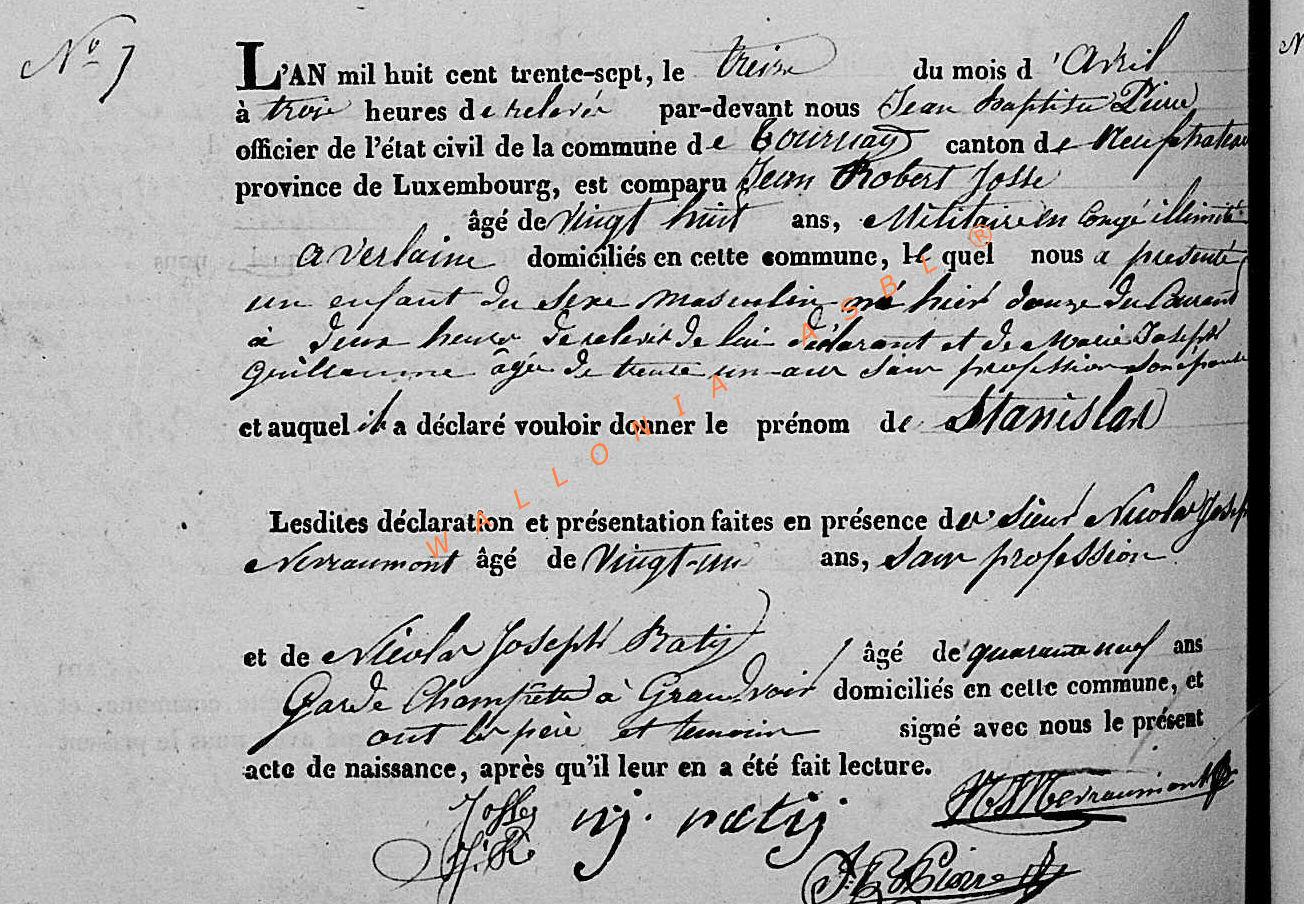 N° 7
L'AN mil huit cent trente-sept, le treize du mois d'Avril
à trois heures de relevée par-devant nous Jean Baptiste Pierre
officier de l'état civil de la commune de Tournay canton de Neufchateau
province de Luxembourg, est comparu Jean Robert Josse
âgé de vingt huit ans, Militaire en Congé illimité
a verlaine domiciliés en cette commune, le quel nous a presenté
un enfant du sexe masculin né hier douze du Courant
à deux heures de relevée de lui déclarant et de Marie Joseph
Guillaume âgée de trente un ans sans profession son epouse
et auquel il a déclaré vouloir donner le prénom de Stanislas
Lesdites déclaration et présentation faites en présence de sieur Nicolas Joseph
Nerraumont âgé de vingt-un ans, sans profession
et de Nicolas Joseph Raty âgé de quarante neuf ans
Garde Champêtre à Grandvoir domiciliés en cette commune, et
ont les père et temoins signé avec nous le présent
acte de naissance, après qu'il leur en a été fait lecture.
Josse J. R.
nj. raty
NJ Nerraumont
J. B. Pierre
WALLONIA ASBL ®